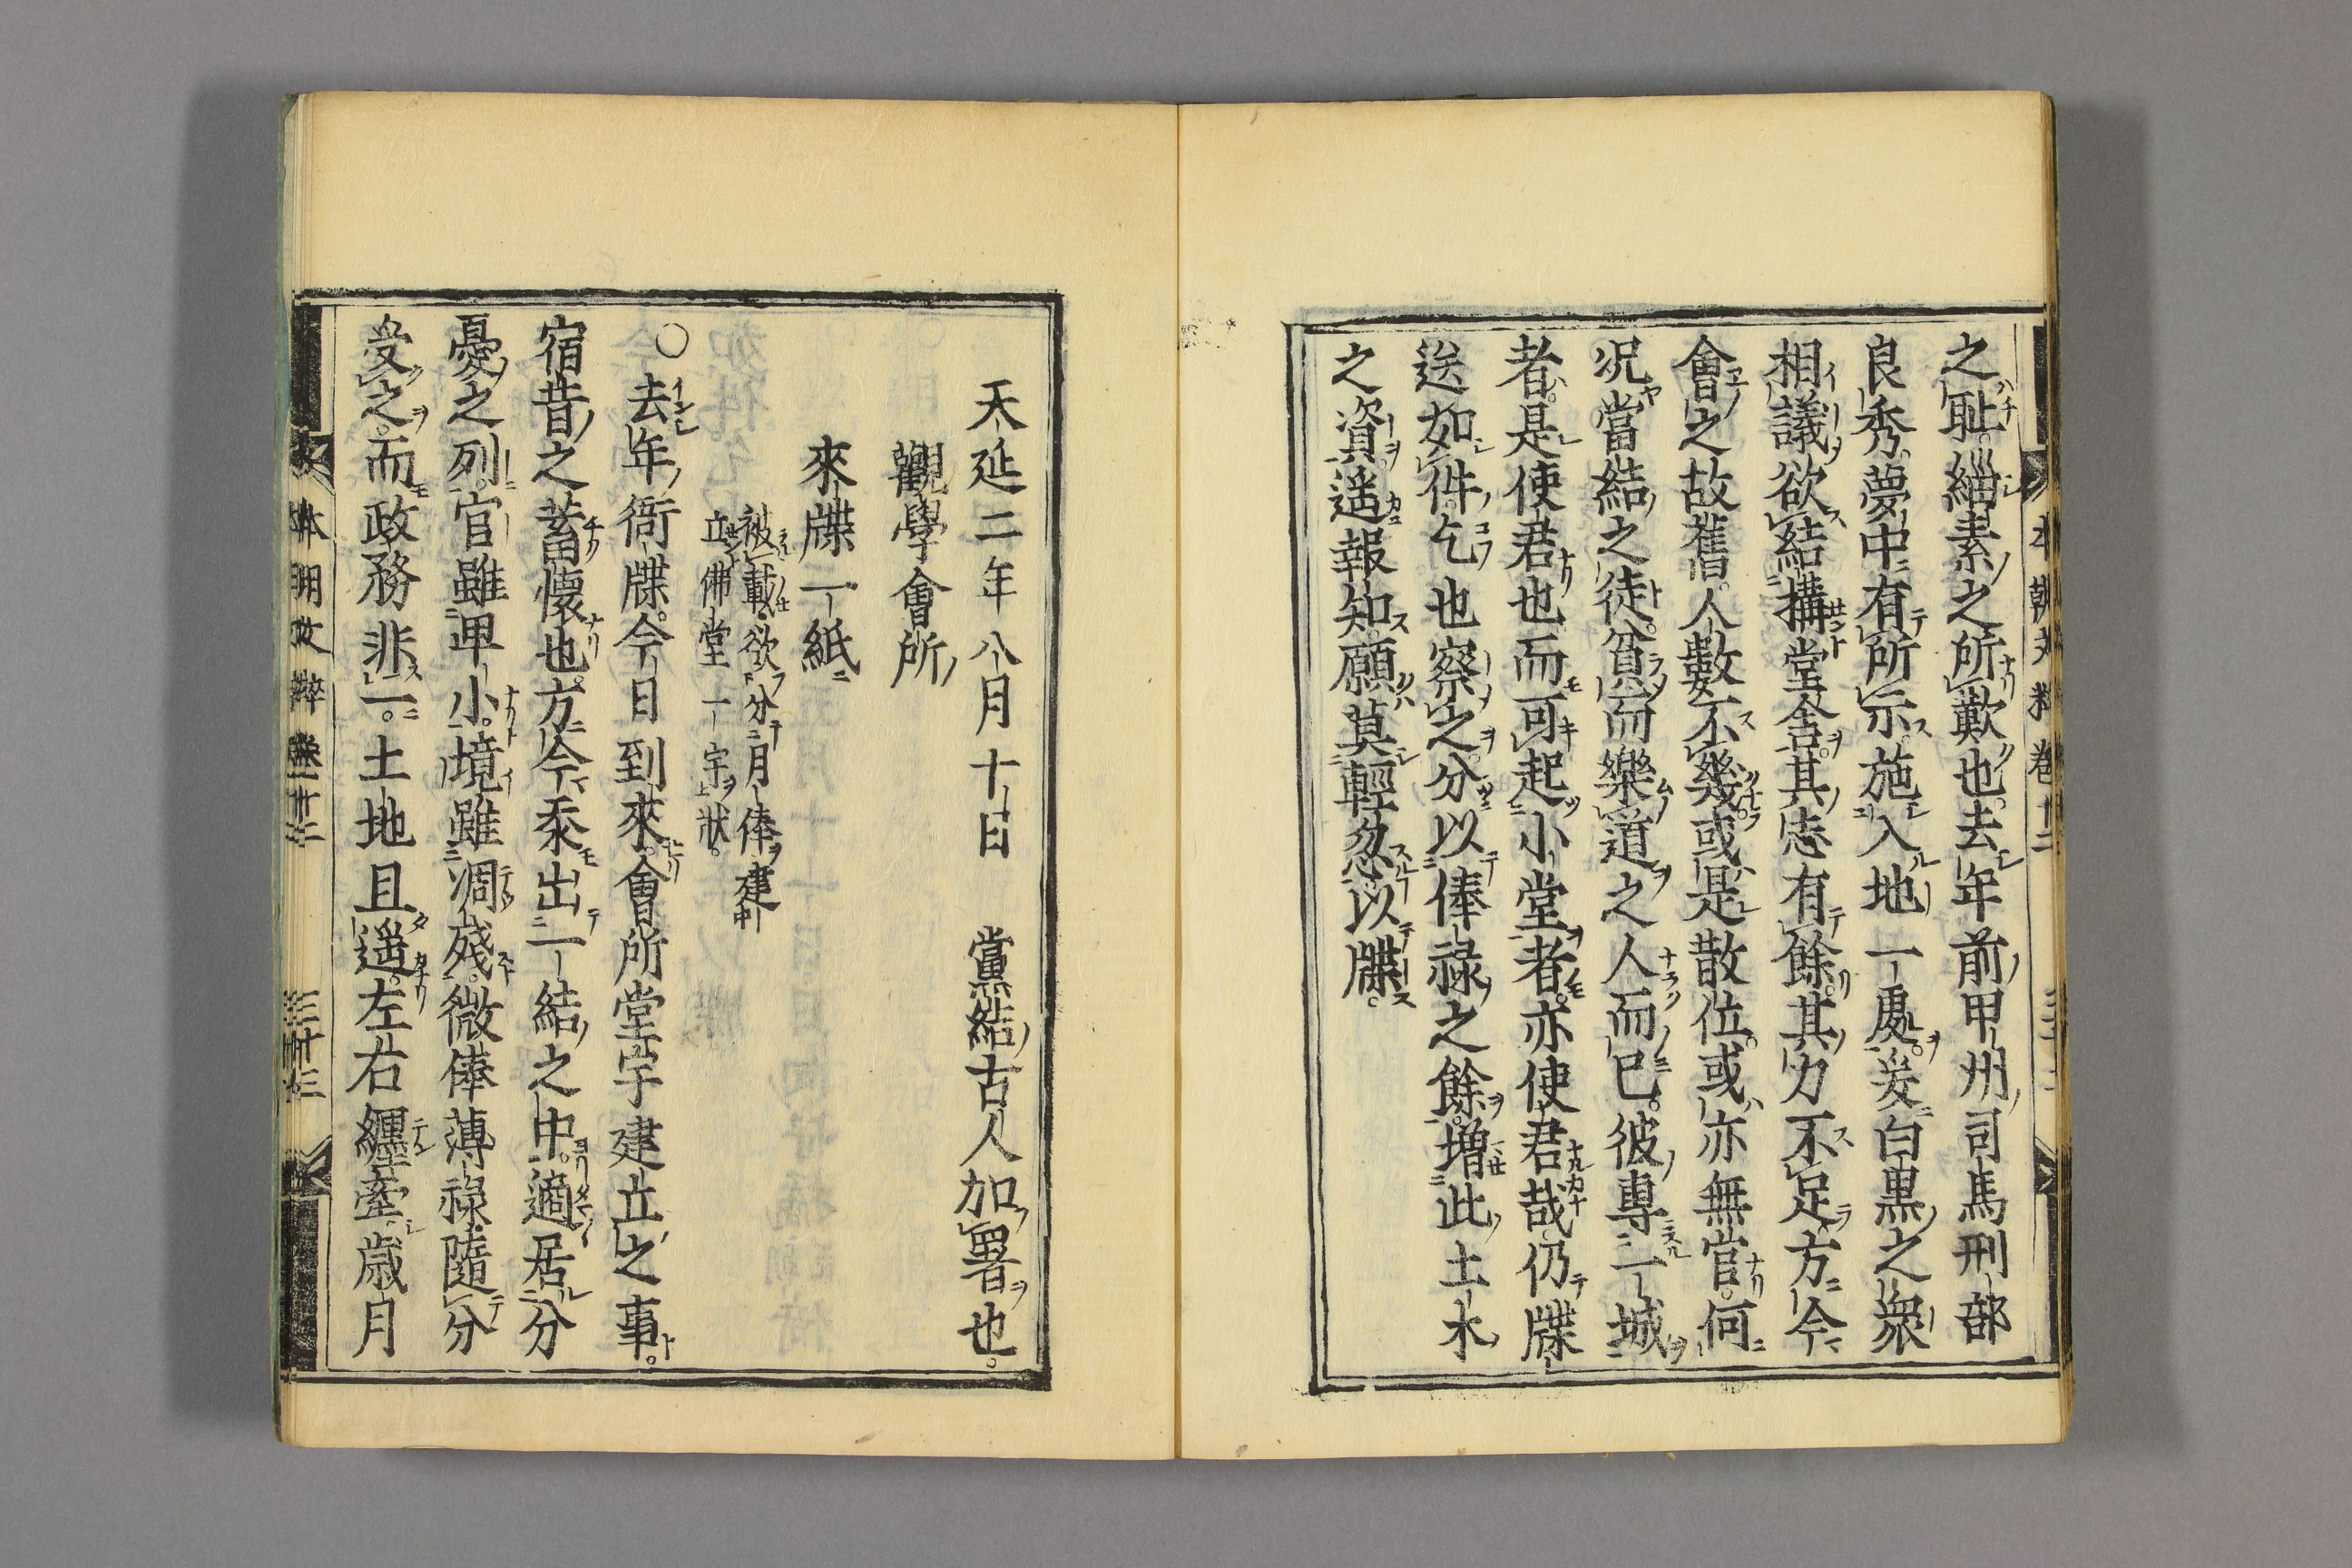 之恥。緇素之所歎也。去年前甲州司馬刑部
良秀。夢中有所示。施入地一處。爰白黒之衆
相議。欲結搆堂舎。其志有餘。其力不足。方今
會之故舊。人數不幾。或是散位。或亦無官。何
況當結之徒。貧而樂道之人而已。彼專一城
者。是使君也。而可起小堂者。亦使君哉。仍牒
送如件。乞也察之。分以俸祿之餘。増此土木
之資。遥報知。願莫輕忽。以牒。
天延二年八月十日　黨結古人加署也。
觀學會所
來牒一紙
被載。欲分月俸建
立佛堂一宇狀。
○去年衙牒。今日到來。會所堂宇建立之事。
宿昔之蓄懷也。方今忝出一結之中。適居分
憂之列。官雖卑小。境雖凋殘。微俸薄祿。隨分
受之。而政務非一。土地且遥。左右纒牽。歳月
本朝文粹　卷十二
本朝文粹　卷十二　三十三